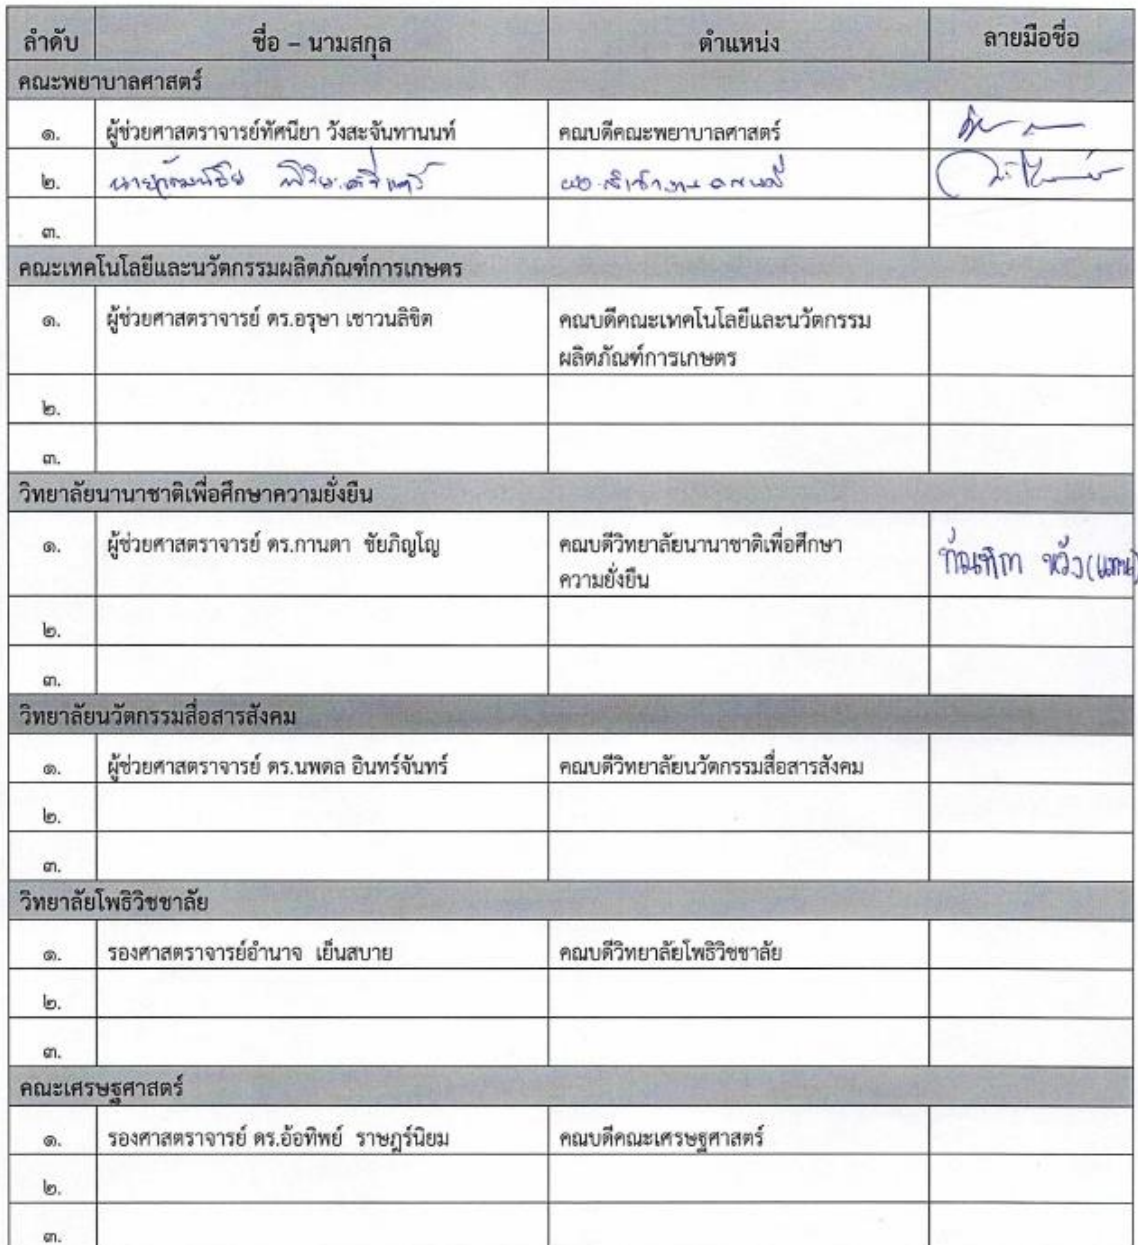 ลำดับ ชื่อ – นามสกุล ตำแหน่ง ลายมือชื่อ
คณะพยาบาลศาสตร์
๑. ผู้ช่วยศาสตราจารย์ทัศนียา วังสะจันทานนท์ คณบดีคณะพยาบาลศาสตร์
๒.
๓.
คณะเทคโนโลยีและนวัตกรรมผลิตภัณฑ์การเกษตร
๑. ผู้ช่วยศาสตราจารย์ ดร.อรุษา เชาวนลิขิต คณบดีคณะเทคโนโลยีและนวัตกรรม
ผลิตภัณฑ์การเกษตร
๒.
๓.
วิทยาลัยนานาชาติเพื่อศึกษาความยั่งยืน
๑. ผู้ช่วยศาสตราจารย์ ดร.กานดา ชัยภิญโญ คณบดีวิทยาลัยนานาชาติเพื่อศึกษา (แทน)
ความยั่งยืน
๒.
๓.
วิทยาลัยนวัตกรรมสื่อสารสังคม
๑. ผู้ช่วยศาสตราจารย์ ดร.นพดล อินทร์จันทร์ คณบดีวิทยาลัยนวัตกรรมสื่อสารสังคม
๒.
๓.
วิทยาลัยโพธิวิชชาลัย
๑. รองศาสตราจารย์อำนาจ เย็นสบาย คณบดีวิทยาลัยโพธิวิชชาลัย
๒.
๓.
คณะเศรษฐศาสตร์
๑. รองศาสตราจารย์ ดร.อ้อทิพย์ ราษฎร์นิยม คณบดีคณะเศรษฐศาสตร์
๒.
๓.